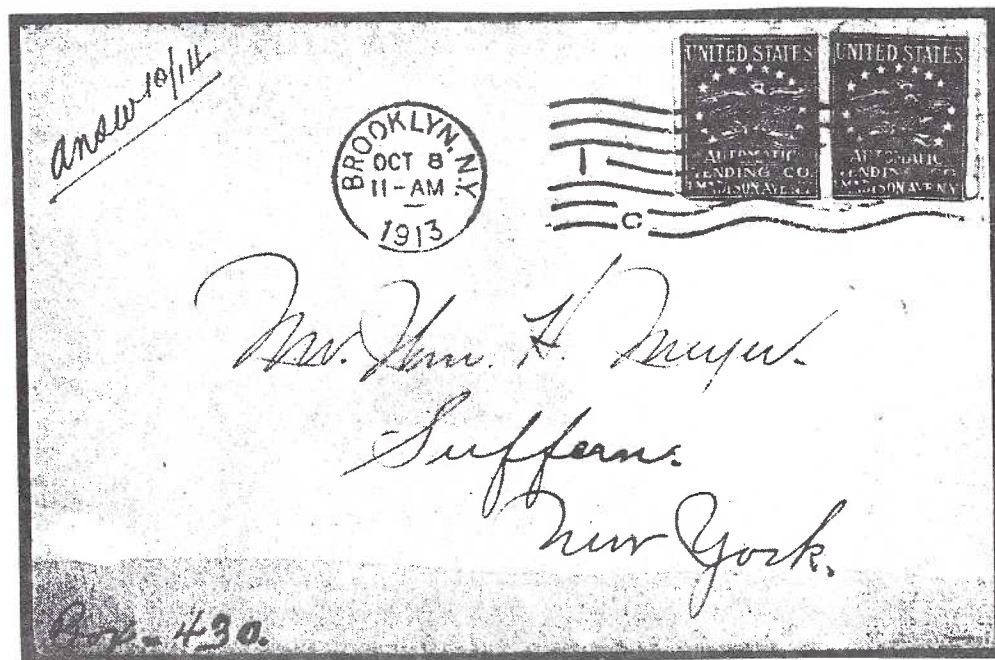 answ 10/14
BROOKLYN. N.Y.
OCT 8
11-AM
1913
1
C
UNITED STATES
AUTOMATIC
VENDING CO.
1 MADISON AVE N.Y.
UNITED STATES
AUTOMATIC
VENDING CO
1 MADISON AVE N.Y.
Mr. Wm. H. Meyer.
Suffern.
New York.
Box-430.